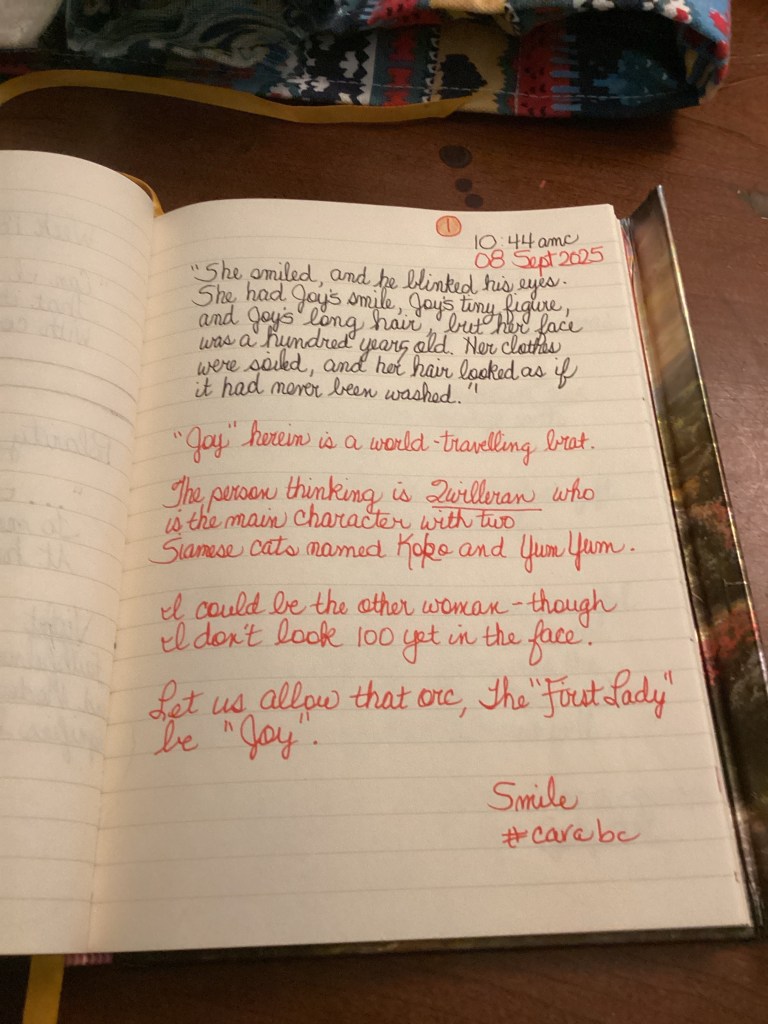 1
10:44 amc
08 Sept 2025
"She smiled, and he blinked his eyes.
She had Joy's smile, Joy's tiny figure,
and Joy's long hair, but her face
was a hundred years old. Her clothes
were soiled, and her hair looked as if
it had never been washed."
"Joy" herein is a world-travelling brat.
The person thinking is Qwilleran who
is the main character with two
Siamese cats named Koko and Yum Yum.
I could be the other woman - though
I don't look 100 yet in the face.
Let us allow that orc, The "First Lady"
be "Joy".
Smile
#carabc